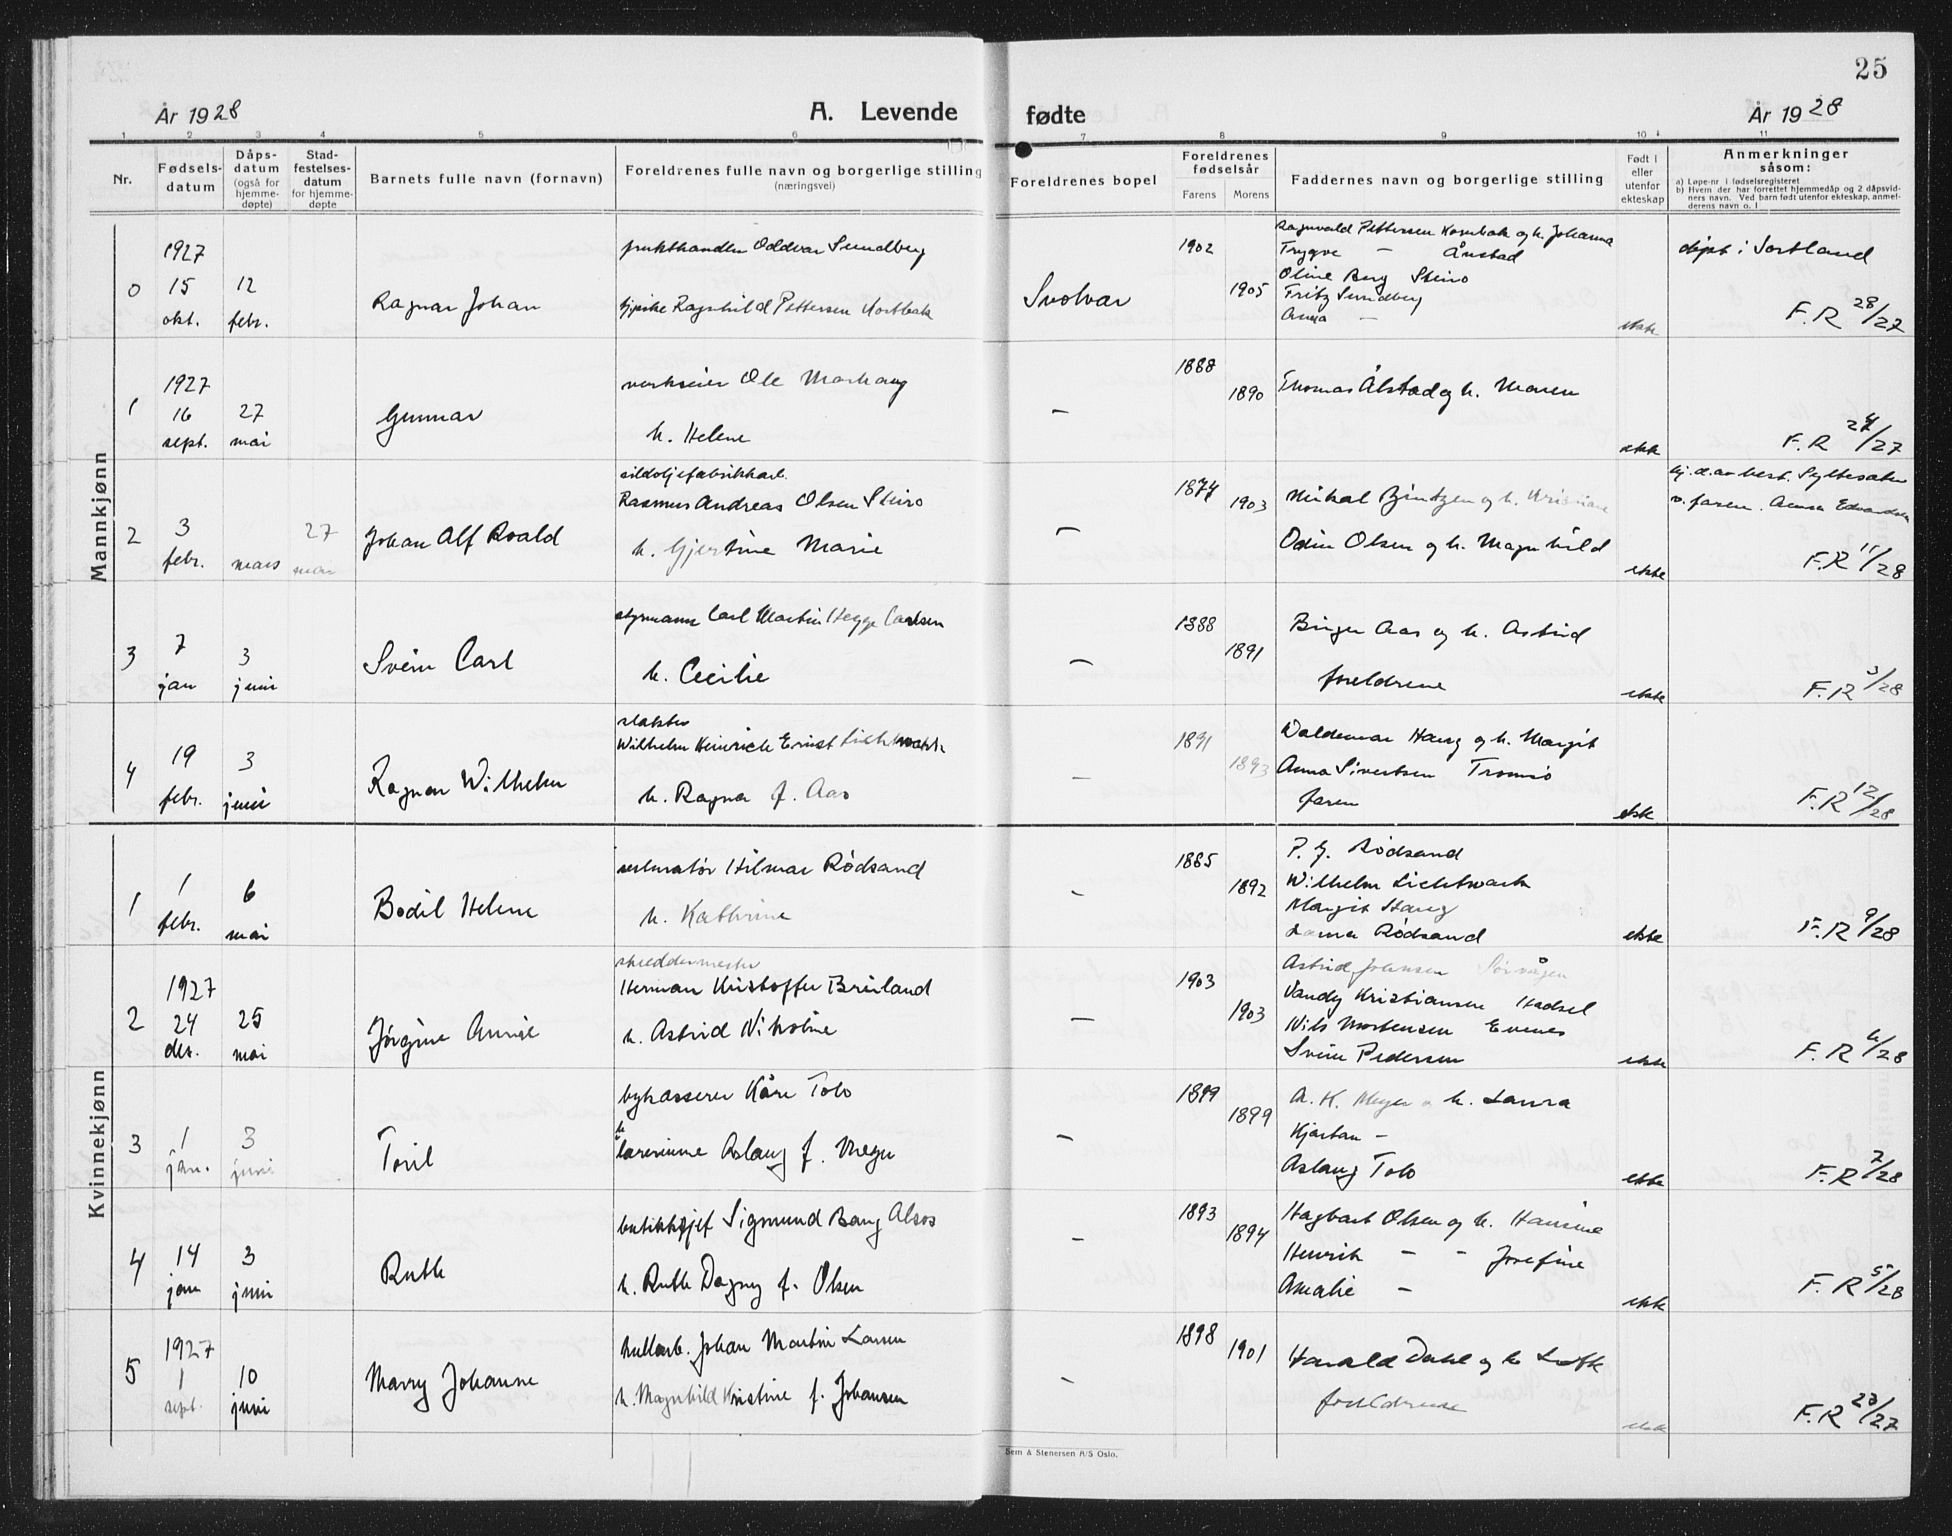 25
År 1928
A. Levende
fødte
År 1928
1 2 3 4 5 6 7 8 9 10 11
Nr.
Fødsels-
datum
Dåps-
datum
(også for
hjemme-
døpte)
Stad-
festelses-
datum
for hjemme-
døpte
Barnets fulle navn (fornavn)
Foreldrenes fulle navn og borgerlige stilling
(næringsvei)
Foreldrenes bopel
Foreldrenes
fødselsår
Farens Morens
Faddernes navn og borgerlige stilling
Født i
eller
utenfor
ekteskap
Anmerkninger
såsom:
a) Løpe-nr i fødselsregisteret
b) Hvem der har forrettet hjemmedåp og 2 dåpsvid-
ners navn. Ved barn født utenfor ekteskap, anmel-
derens navn o. l
Mannkjønn
0 1927 15 okt. 12 febr.
Ragnar Johan
Oddvar Sundberg
Ragnhild Pettersen
Svolvær
1902 1905
Pettersen og h. Johanna
Trygve — Ånstad
Oline Berg Steiro
Fritz Sundberg
Anna —
ekte
døpt i Sortland
F.R 28/27
1 1927 16 sept. 27 mai
Gunnar
verkseier Ole Markaug
h. Helene
—
1888 1890
Thomas Ålstad og h. Maren
ekte
F.R 24/27
2 3 febr. mars 27 mai
Johan Alf Roald
sildoljefabrikkarb.
Rasmus Andreas Olsen Steiro
h. Gjertine Marie
—
1874 1903
Mikal Bentzen og h. Kristiane
Odin Olsen og h. Magnhild
ekte
hj.d. av best. Syltesæter
v. faren. Anna Edvardsen
F.R 11/28
3 7 jan 3 juni
Svein Carl
styrmann Carl Martin Hegge Carlsen
h. Cecilie
—
1888 1891
Birger Aas og h. Astrid
foreldrene
ekte
F.R 3/28
4 19 febr. 3 juni
Ragnar Wilhelm
slakter
Wilhelm Heinrich Ernst Lichtwark
h. Ragna f. Aas
—
1891 1893
Waldemar Haug og h. Margit
Anna Sivertsen Tromsø
faren
ekte
F.R 12/28
Kvinnekjønn
1 1 febr. 6 mai
Bodil Helene
restauratør Hilmar Rødsand
h. Kathrine
—
1885 1892
P. G. Rødsand
Wilhelm Lichtwark
Margit Haug
Rødsand
ekte
F.R 9/28
2 1927 24 des. 25 mai
Jørgine Annie
skreddermester
Herman Kristoffer Breiland
h. Astrid Nikoline
—
1903 1903
Astrid Johnsen Sørvågen
Vandy Kristiansen Hadsel
Nils Mortensen Evenes
Svein Pedersen
ekte
F.R 6/28
3 1 jan. 3 juni
Toril
bykasserer Kåre Tolo
h. lærerinne Aslaug f. Meyer
—
1899 1899
A. K. Meyer o h. Laura
Kjartan —
Aslaug Tolo
ekte
F.R 7/28
4 14 jan 3 juni
Ruth
butikksjef Sigmund Bang Alsos
h. Ruth Dagny f. Olsen
—
1893 1894
Hagbart Olsen og h. Hansine
Henrik — — Josefine
Amalie —
ekte
F.R 5/28
5 1927 1 sept. 10 juni
Marry Johanne
kullarb. Johan Martin Larsen
h. Magnhild Kristine f. Johansen
—
1898 1901
Harald Dahl og h.
foreldrene
ekte
F.R 23/27
Sem & Stenersen A/S Oslo.